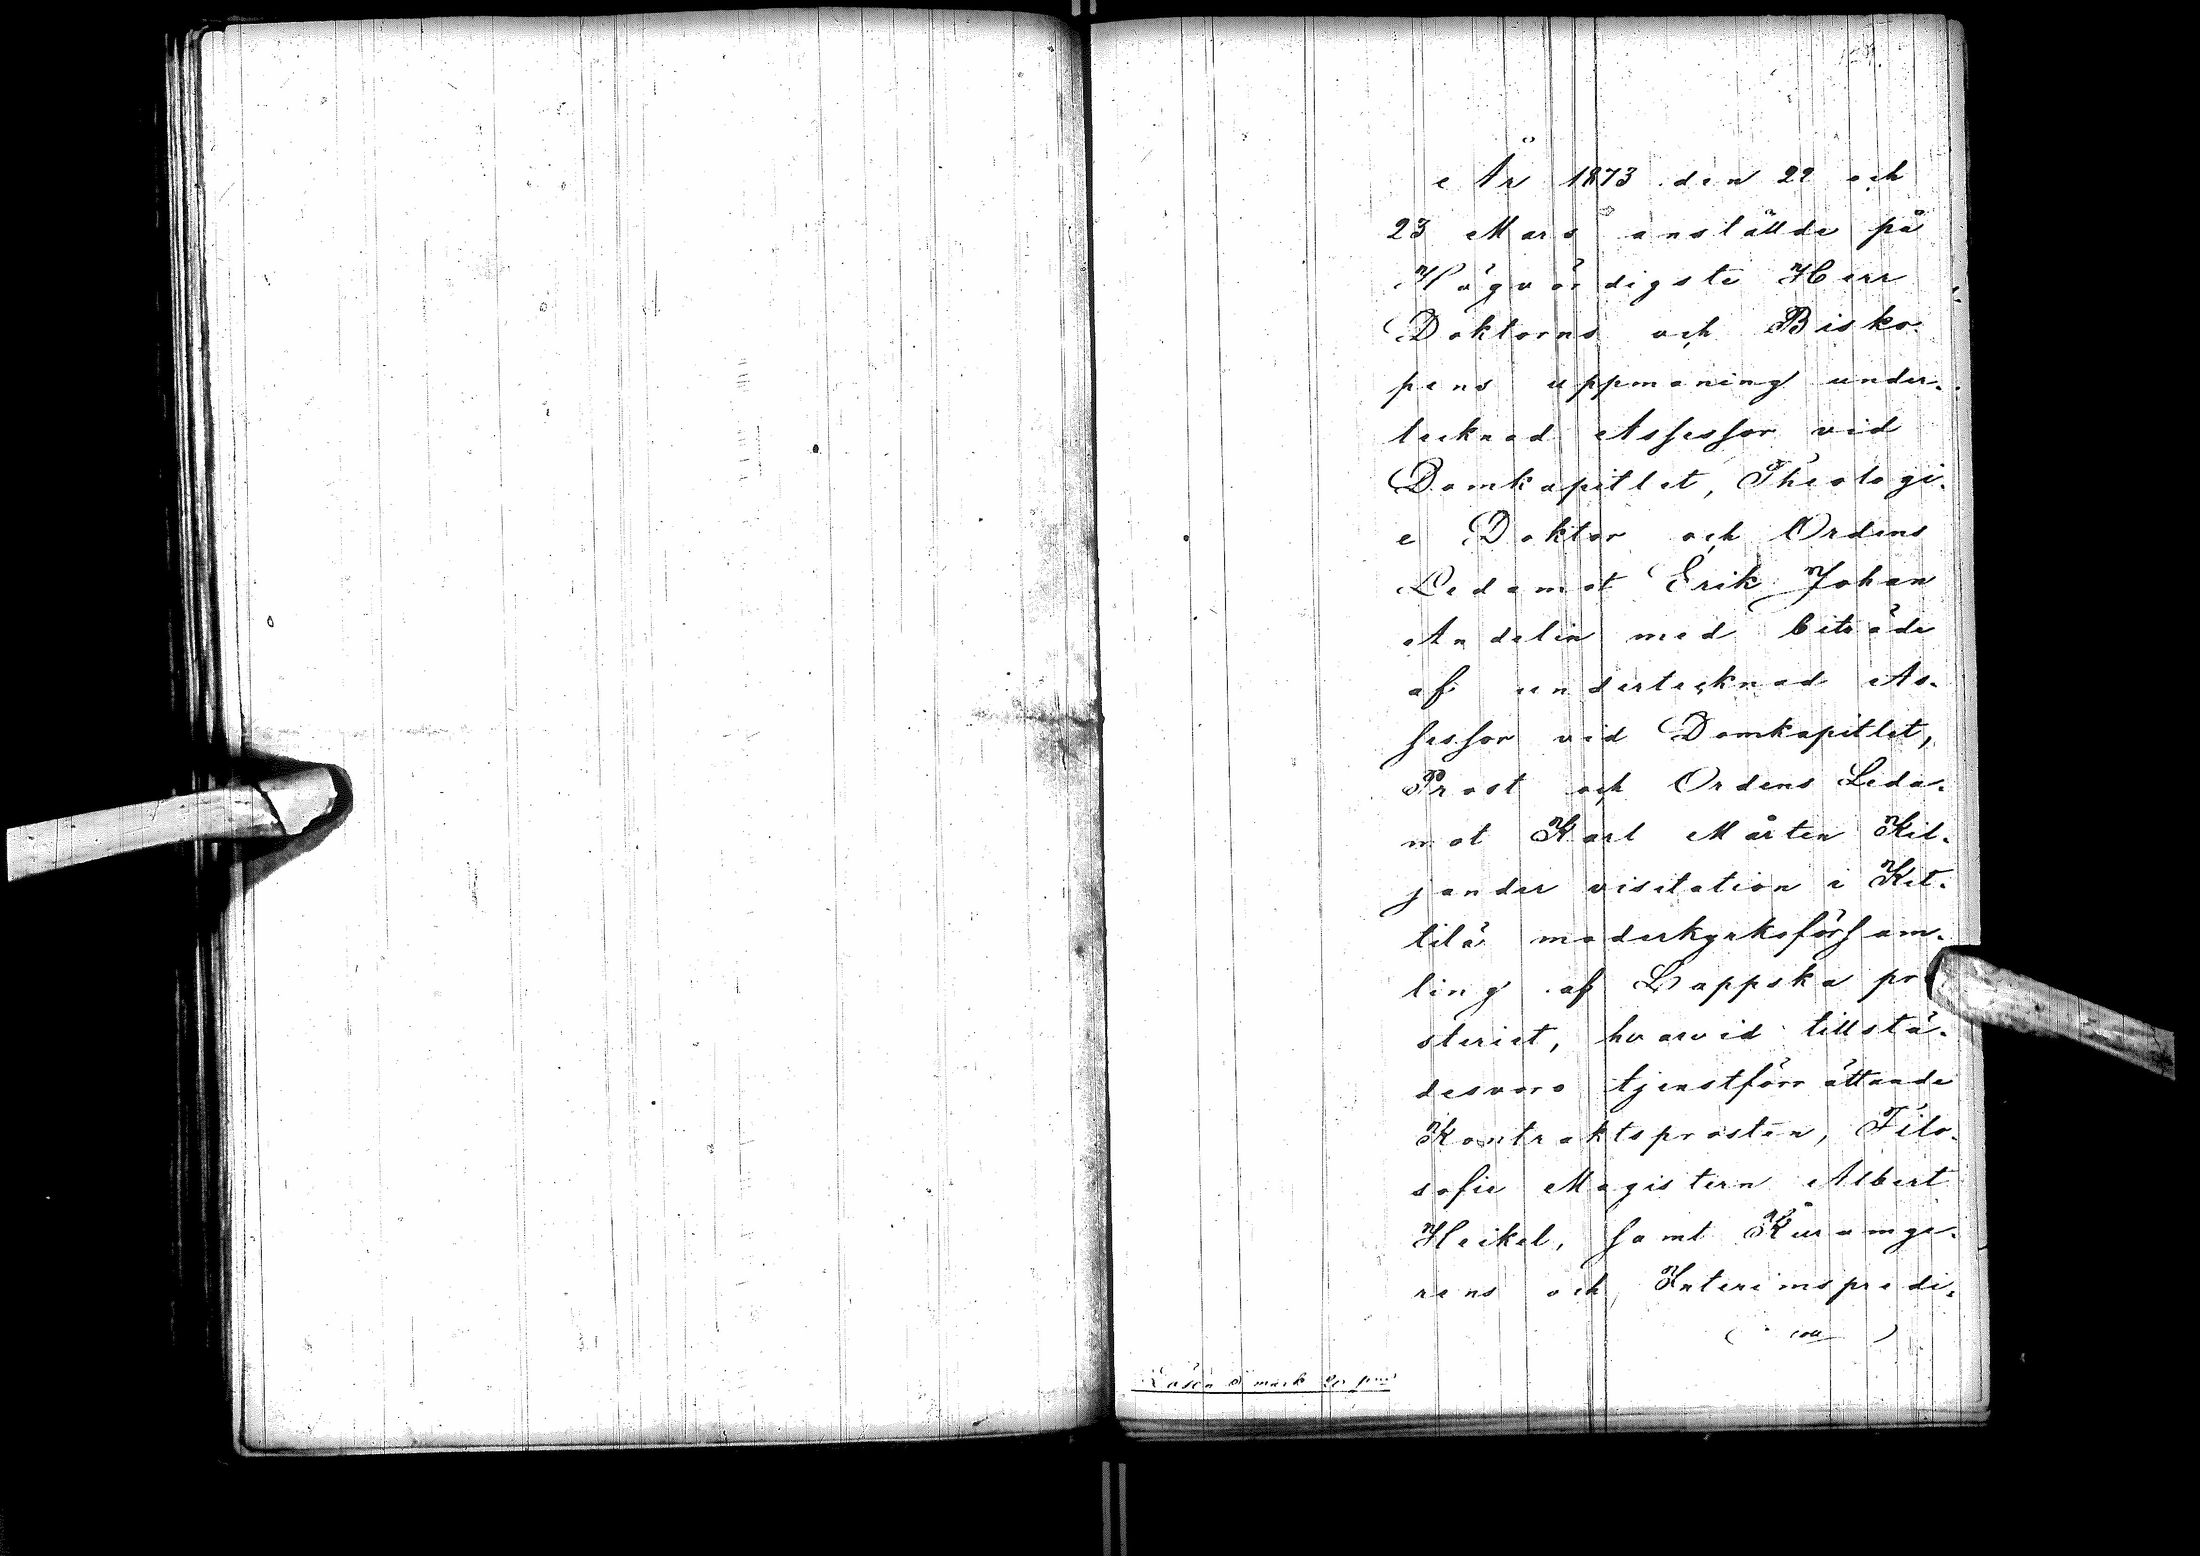 År 1873 den 22 och
23 Mars anställde på
Högvördigste Herr
Doktorns och Bisko-
pens uppmaning under-
tecknad Assessor vid
Domkapitlet, Theologi-
e Doktor och Ordens
Ledamot Erik Johan
Andelin med biträde
af undertecknad As-
sessor vid Domkapitlet,
Prost och Ordens Leda-
mot Karl Mårten Kil-
jander visitation i Kit-
tilä moderkyrkoförsam-
ling af Lappska pro
steriet, hvarvid tillstä-
desvoro tjenstförrättande
Kontraktsprosten, Filo-
sofie Magistern Albert
Heikel, samt Kuramge-
rens och Interimspredi-
Lösen 5 mark 20 pni